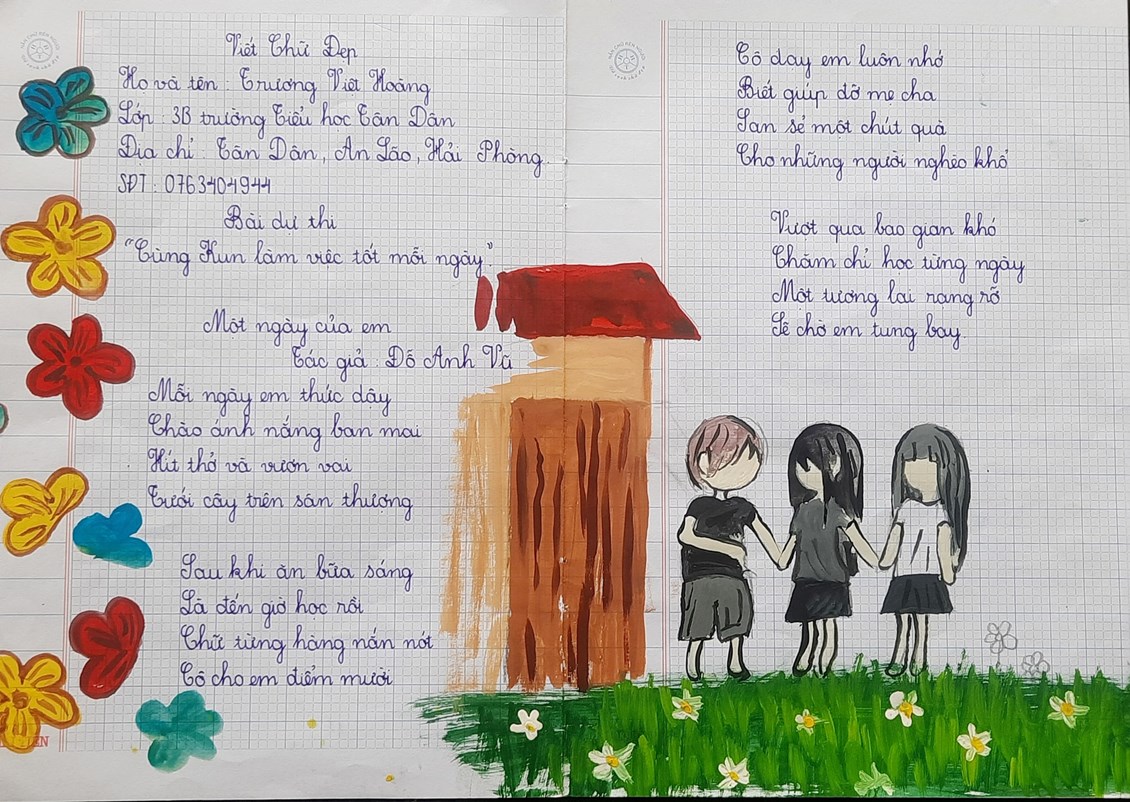 Viết Chữ Đẹp
Họ và tên : Trương Việt Hoàng
Lớp : 3B trường Tiểu học Tân Dân
Địa chỉ : Tân Dân, An Lão, Hải Phòng.
SĐT : 0763404944
Bài dự thi
"Cùng Kun làm việc tốt mỗi ngày"
Một ngày của em
Tác giả : Đỗ Anh Vũ
Mỗi ngày em thức dậy
Chào ánh nắng ban mai
Hít thở và vươn vai
Tưới cây trên sân thượng
Sau khi ăn bữa sáng
Là đến giờ học rồi
Chữ từng hàng nắn nót
Cô cho em điểm mười
Cô dạy em luôn nhớ
Biết giúp đỡ mẹ cha
San sẻ một chút quà
Cho những người nghèo khổ
Vượt qua bao gian khó
Chăm chỉ học từng ngày
Một tương lai rạng rỡ
Sẽ chờ em tung bay